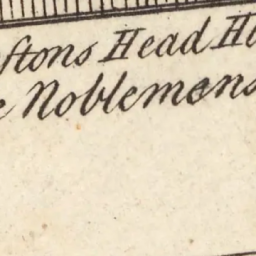 ftons Head H
e Noblemens